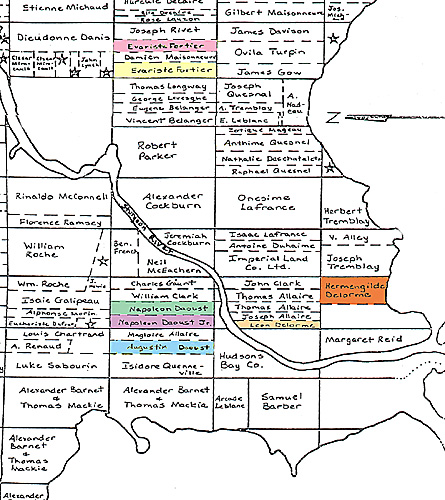 Etienne Michaud
Hercule Decaire
Rose Lauzon
Gilbert Maisonneuve
Jos.
Dieudonne Danis
Joseph Rivet
James Davison
Evariste Fortier
Damien Maisonneuve
Ovila Turpin
Evariste Fortier
James Gow
John
Lynch
Thomas Longway
Joseph
Quesnal
A.
Nad-
eau
George Levesque
Eugene Belanger
A. Tremblay
Vincent Belanger
E. Leblanc
Robert
Parker
Anthime Quesnel
Nathalie Deschatelets
Raphael Quesnel
Rinaldo McConnell
Alexander
Cockburn
Onesime
Lafrance
Herbert
Tremblay
River
Florence Ramsey
Isaac Lafrance
V. Alley
William
Roche
Ben.
French
Jeremiah
Cockburn
Antoine Duhaime
Neil
McEachern
Imperial Land
Co. Ltd.
Joseph
Tremblay
Wm. Roche
Charles Gaunt
John Clark
Hermengilde
Delorme
Isaie Galipeau
William Clark
Thomas Allaire
Alphonse Morin
Napoleon Daoust
Thomas Allaire
Napoleon Daoust Jr.
Joseph Allaire
Leon Delorme
Louis Chartrand
Magloire Allaire
Margaret Reid
A. Renaud
Augustin Daoust
Luke Sabourin
Isidore Quenne-
ville
Hudsons
Bay Co.
Alexander Barnet
& Thomas Mackie
Alexander Barnet
& Thomas Mackie
Arcade
Leblanc
Samuel
Barber
Alexander
Barnet &
Thomas
Mackie
Alexander